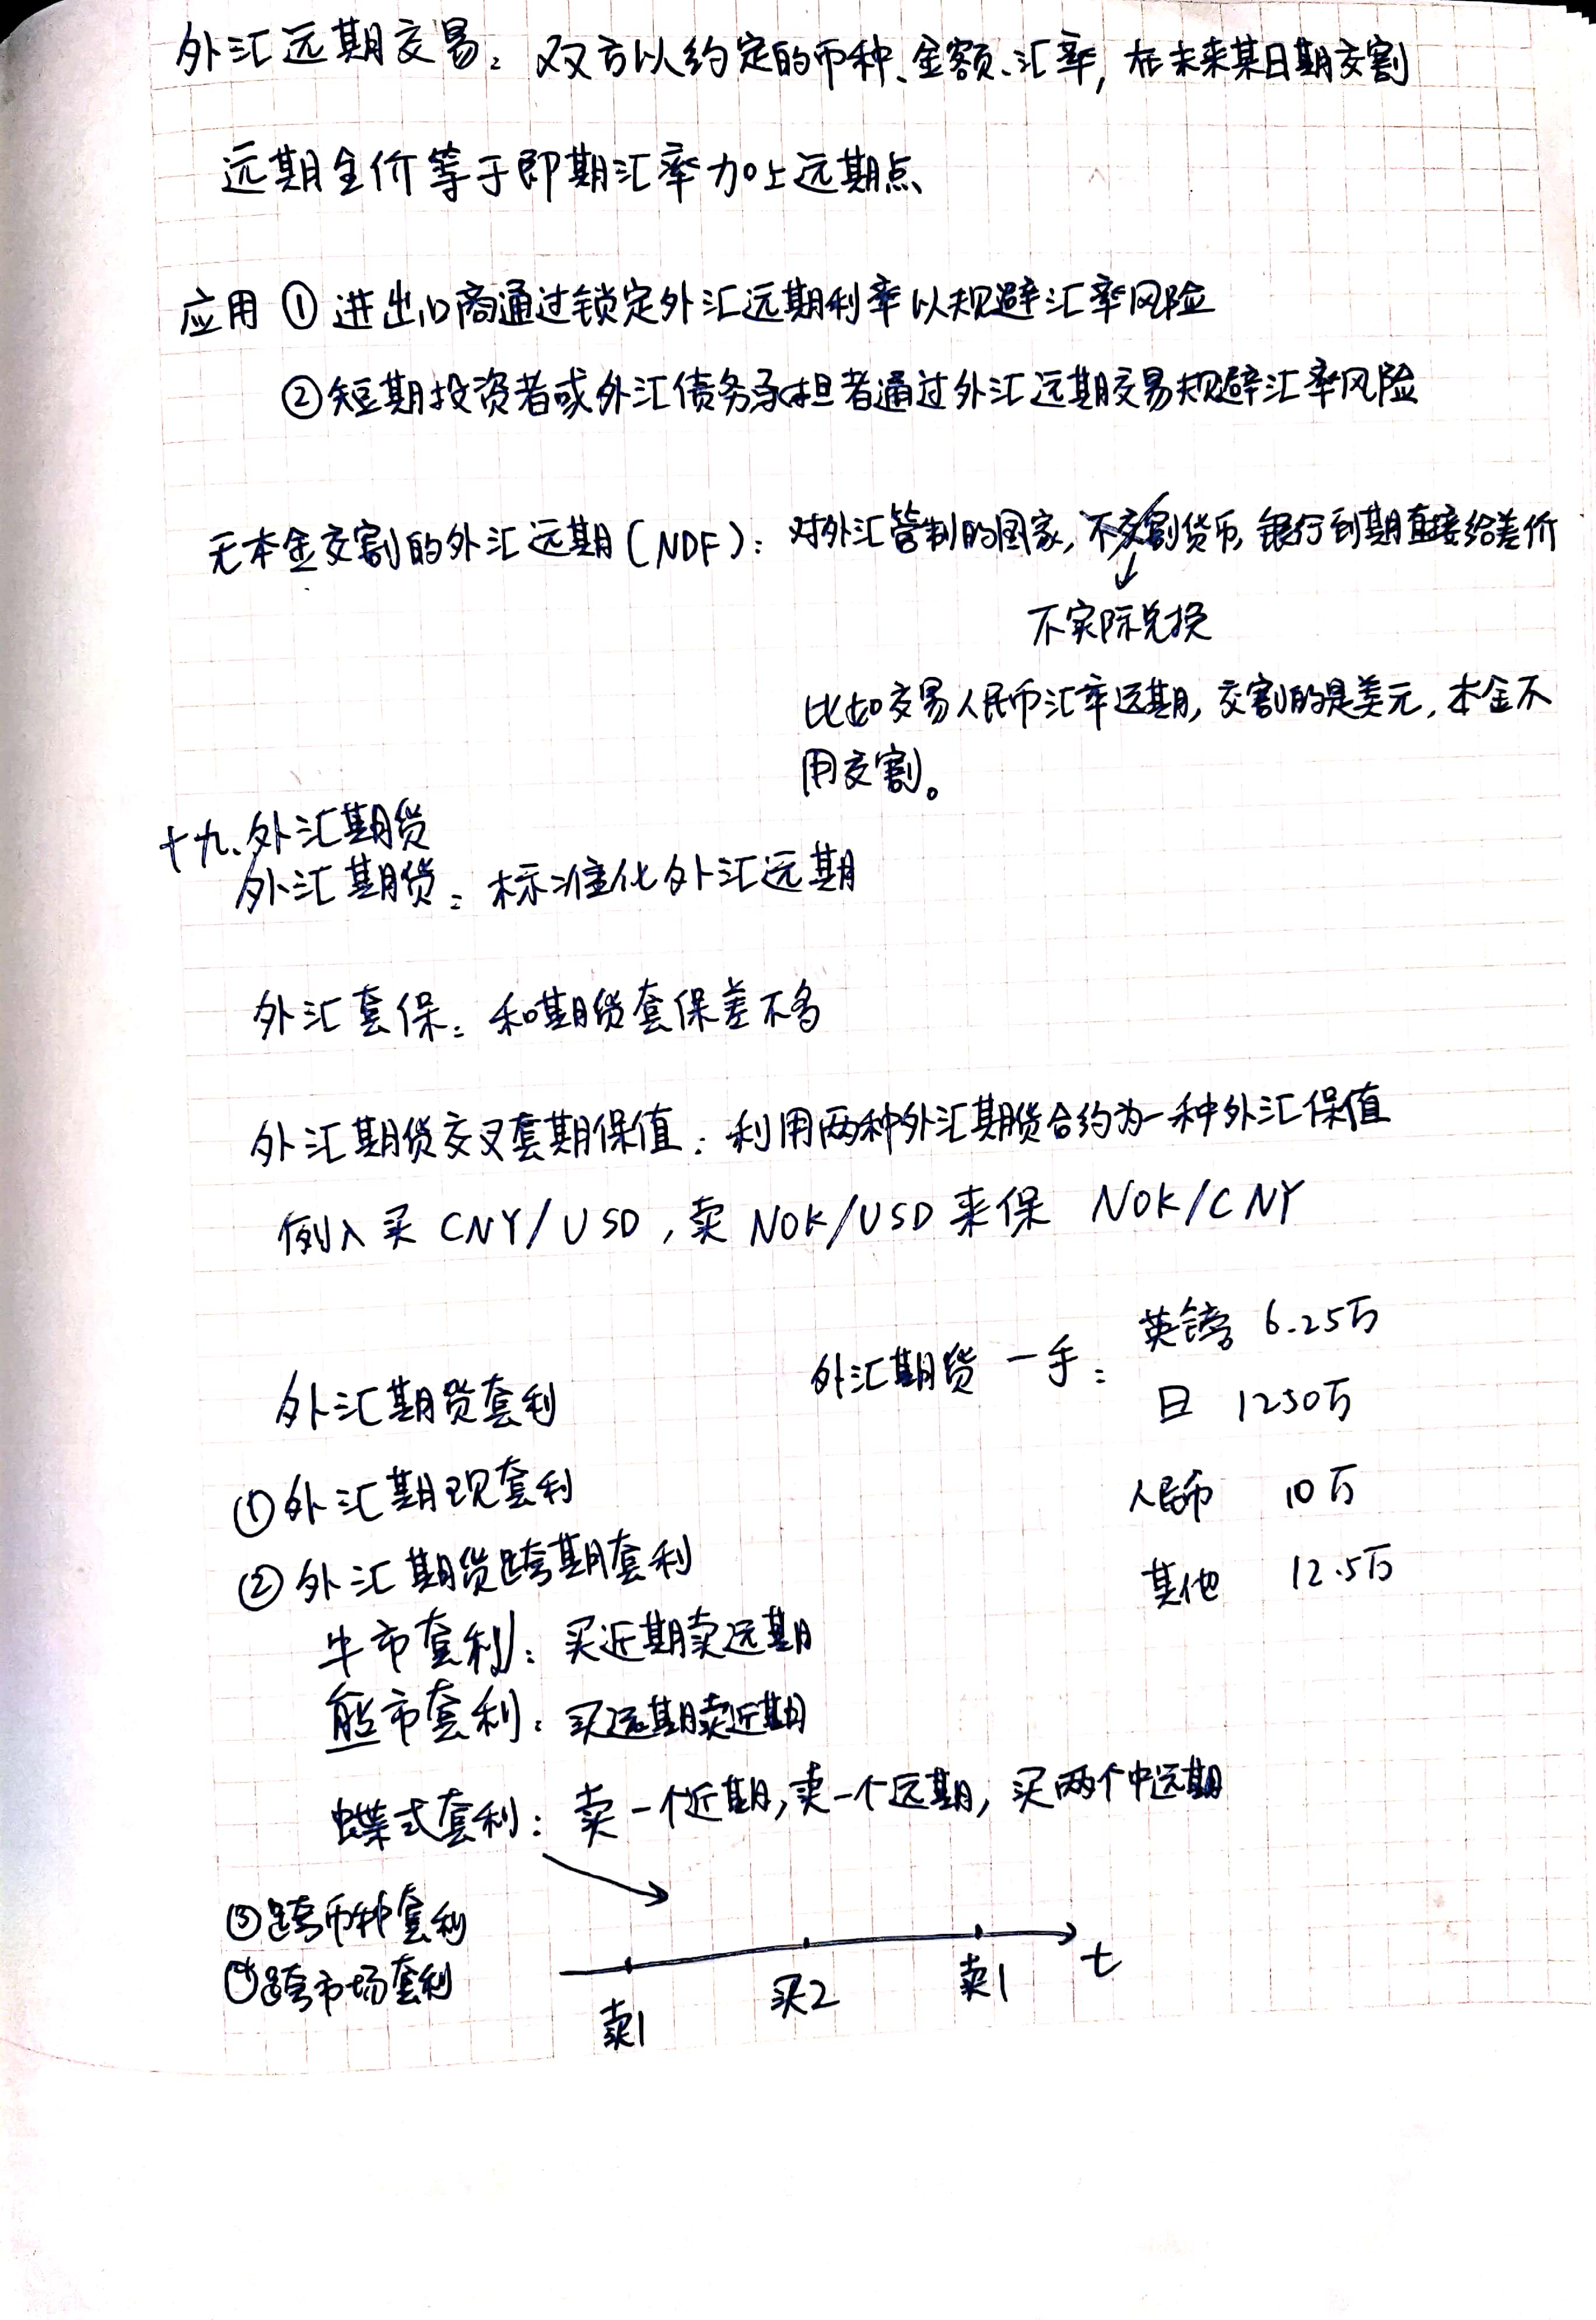 外汇远期交易：双方以约定的币种、金额、汇率，在未来某日期交割
远期全价等于即期汇率加上远期点
应用 ① 进出口商通过锁定外汇远期利率以规避汇率风险
② 短期投资者或外汇债务承担者通过外汇远期交易规避汇率风险
无本金交割的外汇远期(NDF)：对外汇管制的国家，不交割货币，银行到期直接给差价
不实际兑换
比如交易人民币汇率远期，交割的是美元，本金不
用交割。
十九、外汇期货
外汇期货：标准化外汇远期
外汇套保：和期货套保差不多
外汇期货交叉套期保值：利用两种外汇期货合约为一种外汇保值
例入买 CNY/USD，卖 NOK/USD 来保 NOK/CNY
外汇期货一手：英镑 6.25万
日 1250万
人民币 10万
其他 12.5万
外汇期货套利
①外汇期现套利
②外汇期货跨期套利
牛市套利：买近期卖远期
熊市套利：买远期卖近期
蝶式套利：卖一个近期，卖一个远期，买两个中远期
③跨币种套利
④跨市场套利
卖1 买2 卖1 t